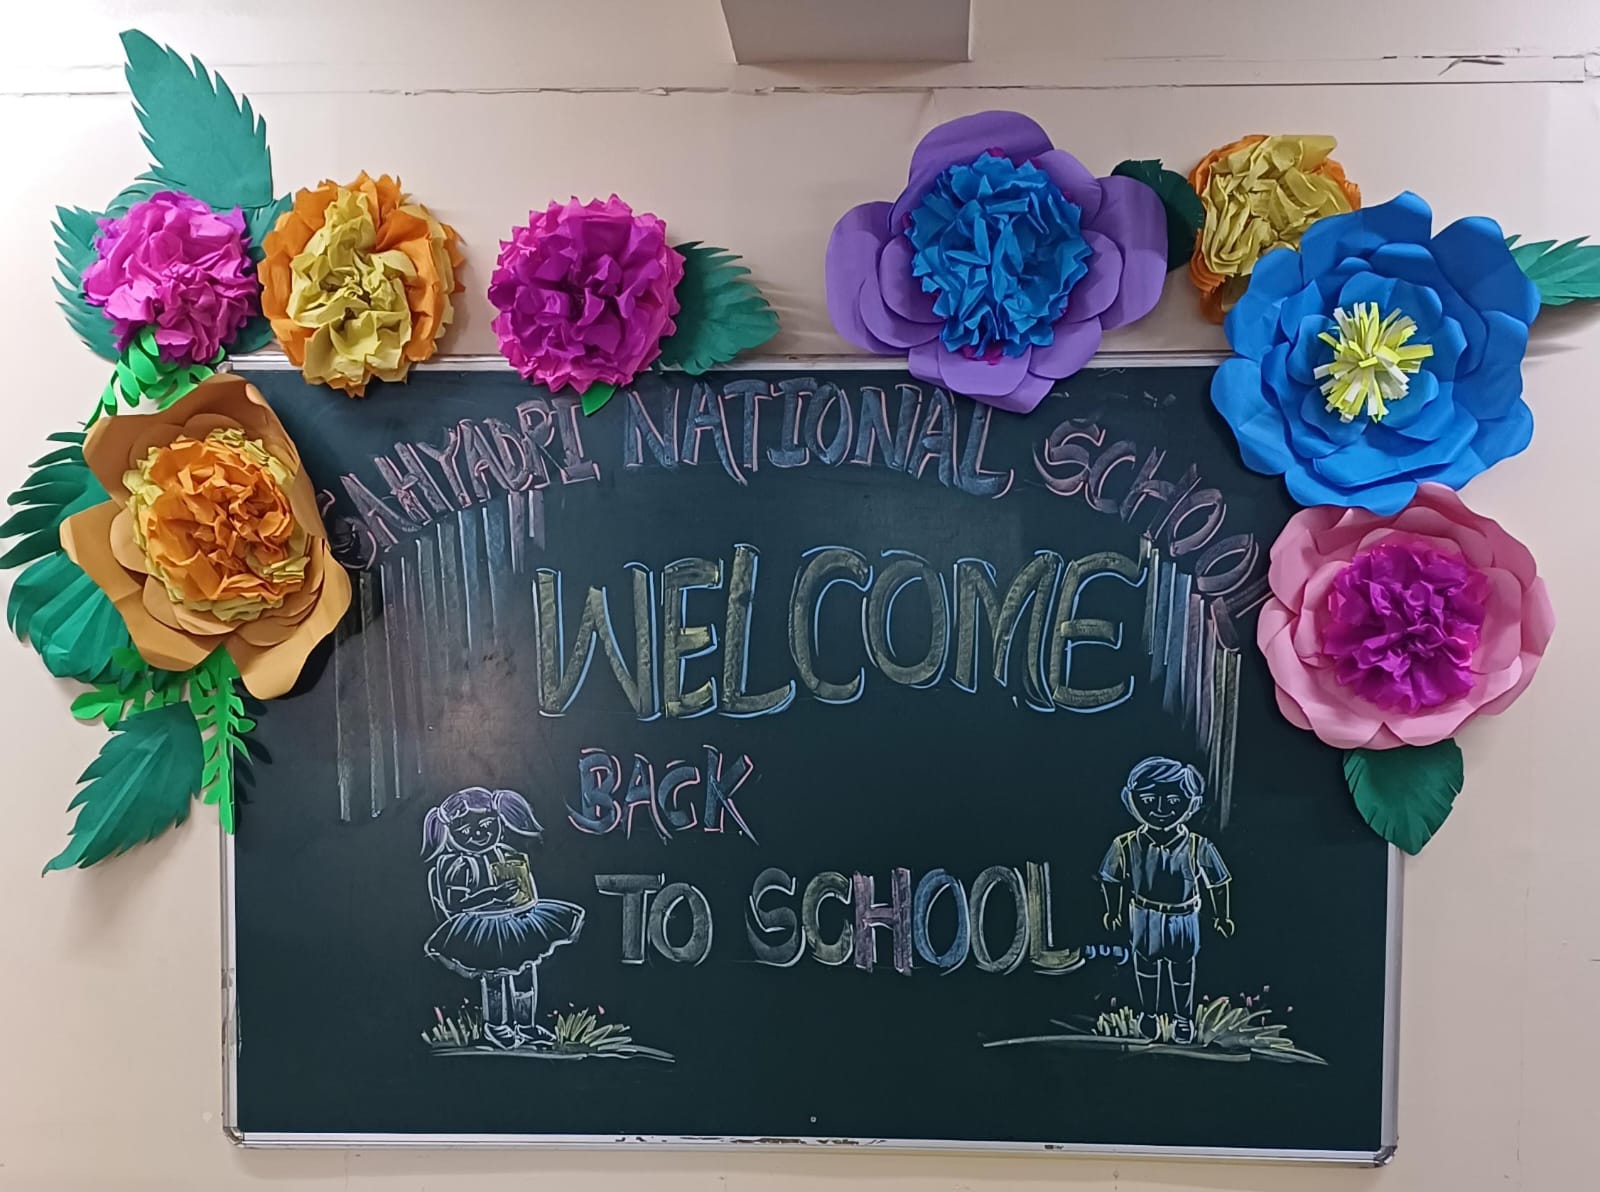 SAHYADRI NATIONAL SCHOOL
WELCOME
BACK
TO SCHOOL...